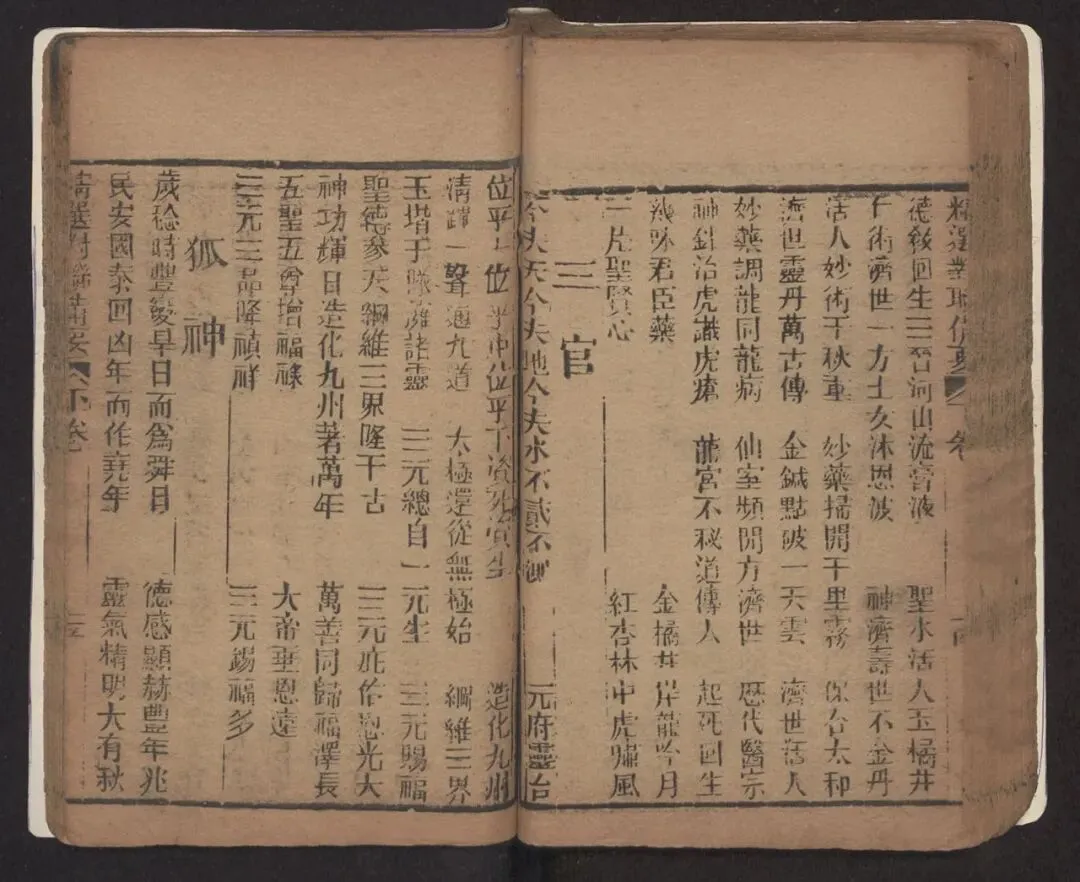 德敘回生三晉河山流膏液 聖水活人玉橘井
仁術濟世一方士女沐恩波 神濟壽世不金丹
活人妙術千秋重 妙藥掃開千里霧 保合太和
濟世靈丹萬古傳 金鍼點破一天雲 濟世活人
妙藥調龍同龍病 仙室頻開方濟世 歷代醫宗
神針治虎識虎瘡 龍宮不秘道傳人 起死回生
幾味君臣藥 金橘井岸龍吟月
一片聖賢心 紅杏林中虎嘯風
三官
夫天今夫地今夫水不貳不測 元府靈台
位乎上位乎中位乎下資死資生 造化九州
清蹕一聲通九道 太極還從無極始 綱維三界
玉堦手諸靈 三元總自一元生 三元賜福
聖德參天綱維三界隆千古 三元庇佑恩光大
神功輝日造化九州著萬年 萬善同歸福澤長
五聖五尊增福祿 大帝垂恩遠
三元三品降禎祥 三元錫福多
狐神
歲稔時豐憂旱日而為舜日 德感顯赫豐年兆
民安國泰回凶年而作堯年 靈氣精明大有秋
下卷